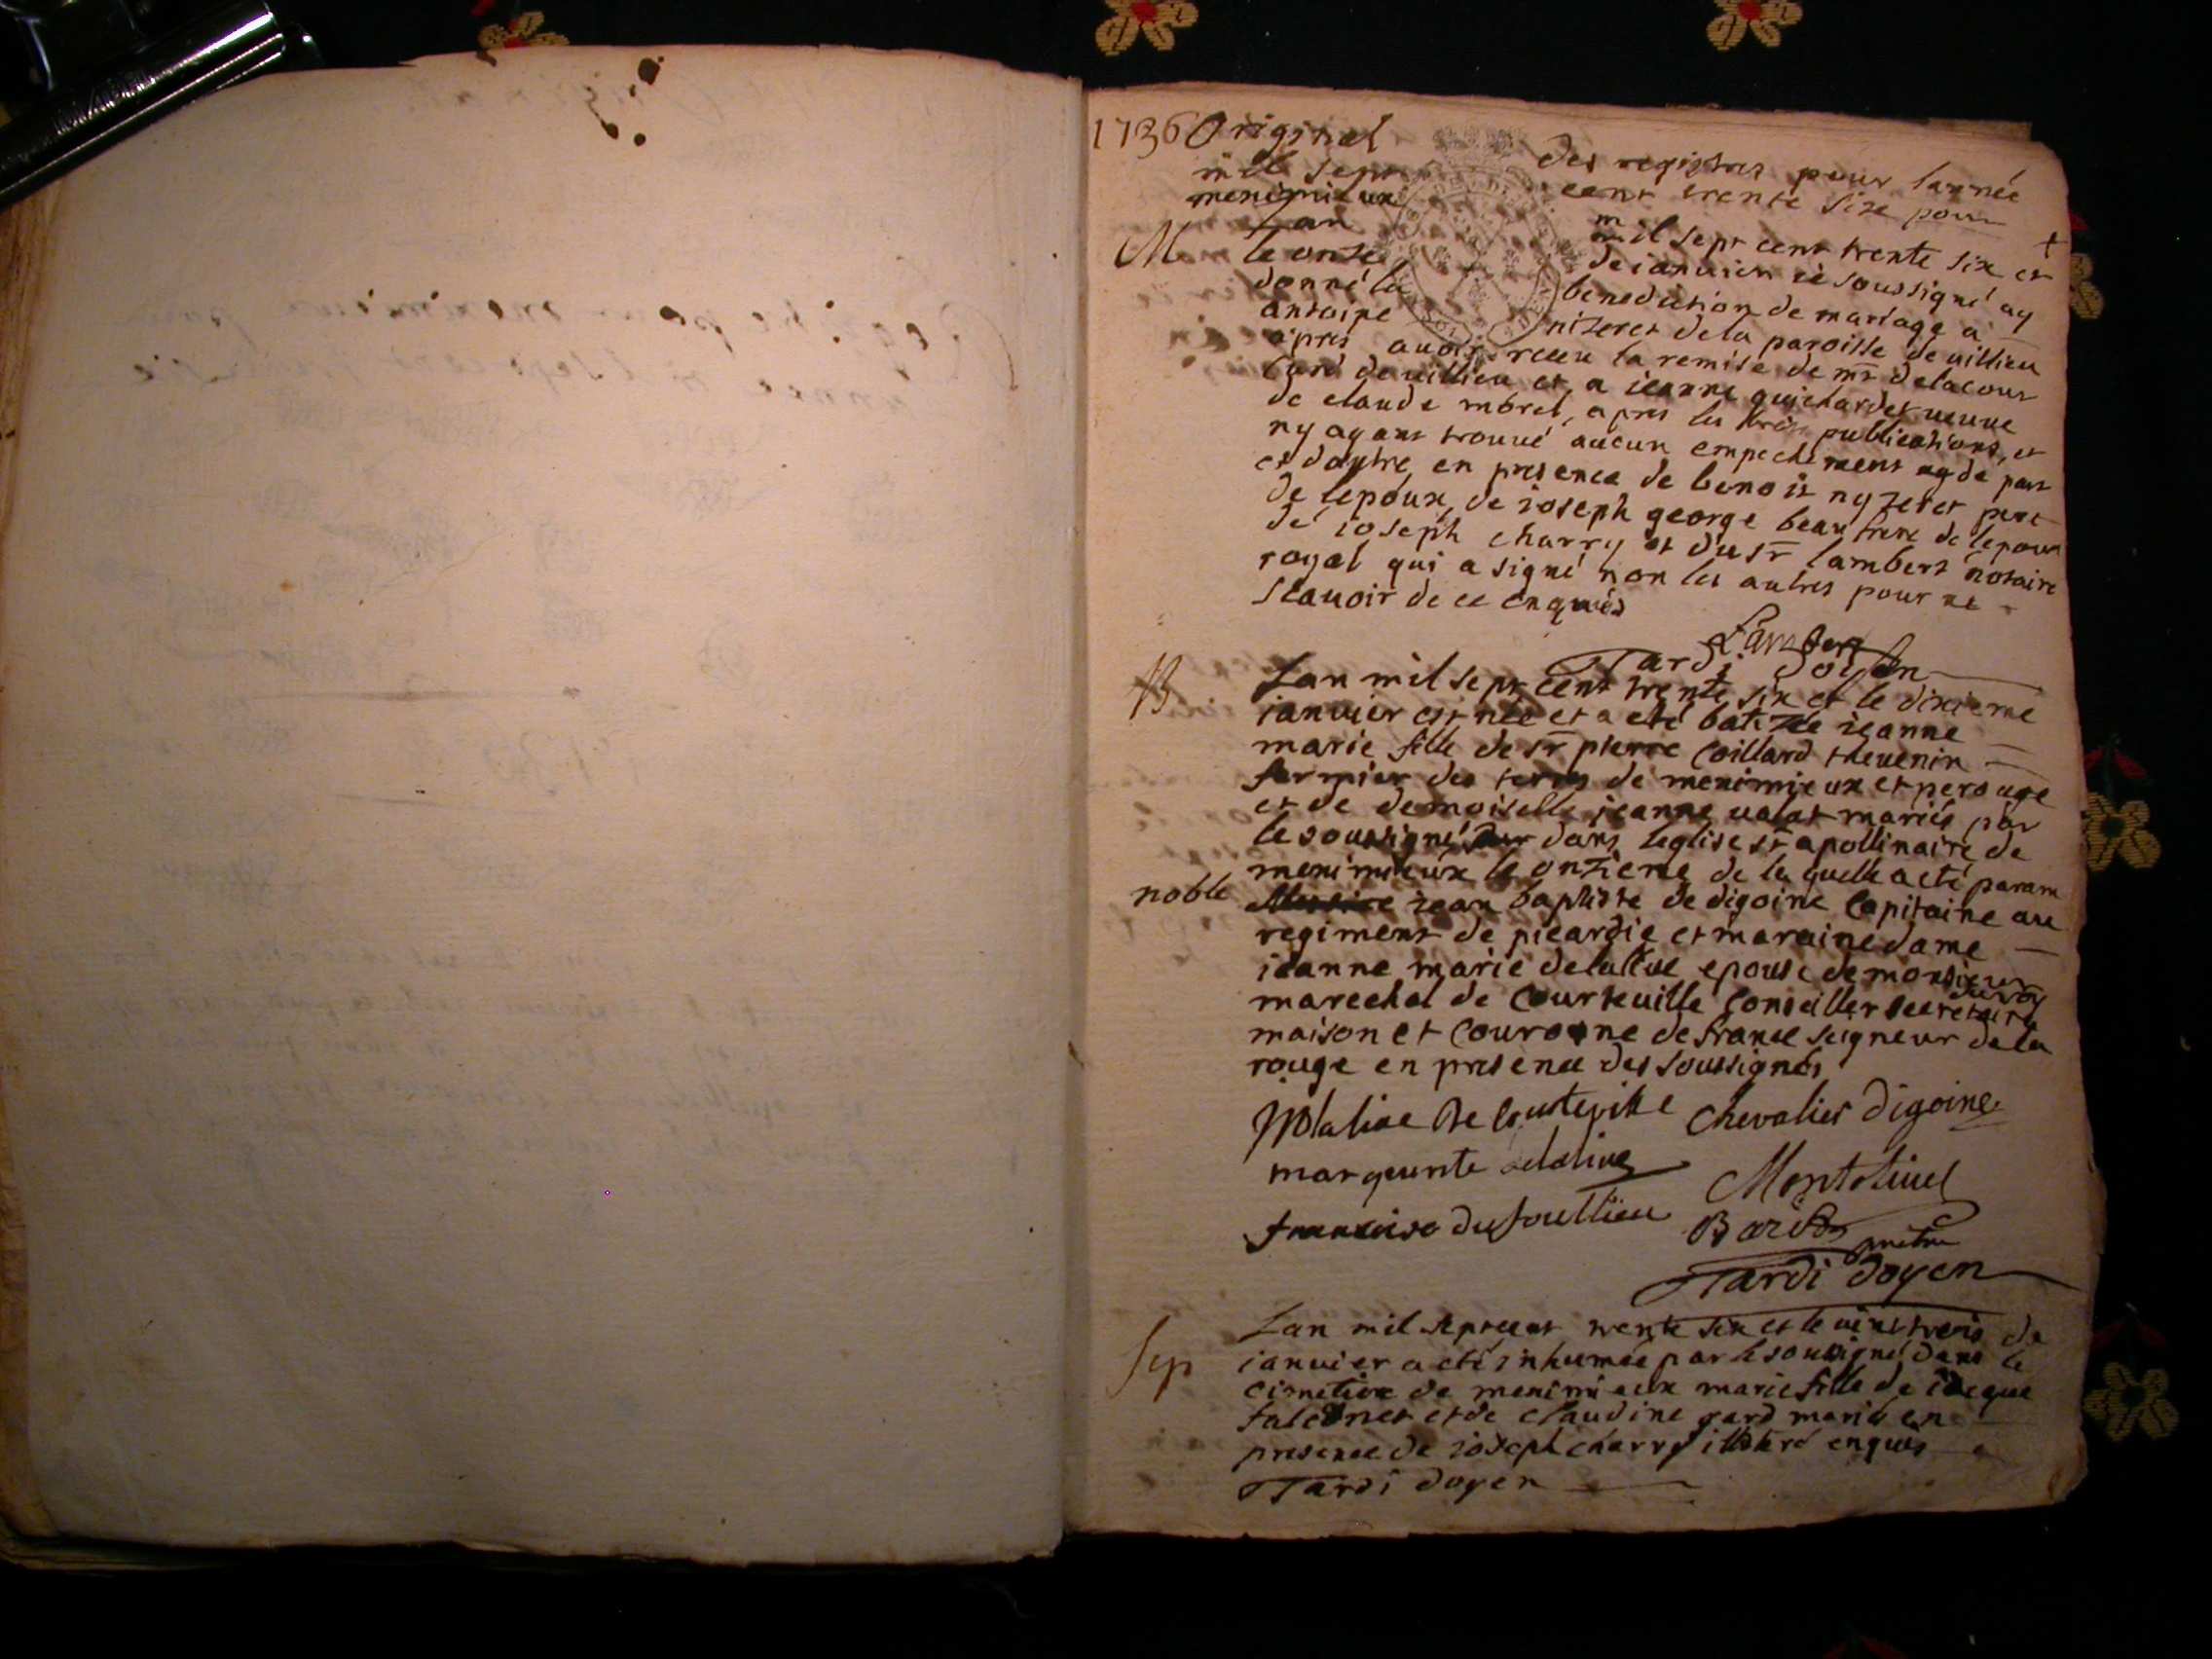 1736 Original des registres pour lannée
mil sept cent trente sixe pour
meximieux
M Lan mil sept cent trente six et
le onze de ianvier ie soussigné ay
donné la benediction de mariage a
antoine nizeret de la paroisse de villieu
apres avoir receu la remise de mr delacour
Curé de villieu et a ieanne guichardet veuve
de claude morel, apres les trois publications, et
ny ayant trouvé aucun empechement ny de part
et dautre, en presence de benoit nyzeret pere
de lepoux, de ioseph george beau frere de lepoux
de ioseph charry et du sr lambert notaire
royal qui a signé non les autres pour ne
scavoir de ce enquis
Lambert
Tardi doyen
B Lan mil sept cent trente six et le dixieme
ianvier est née et a eté batizée ieanne
marie fille de sr pierre Coillard thevenin
fermier des terres de meximieux et perouge
et de demoiselle jeanne valat mariés par
le soussigné dans leglise st apollinaire de
meximieux le onzieme de laquelle a eté param
noble iean baptiste de digoine Capitaine au
regiment de picardie et maraine dame
ieanne marie delalive epouse de monsieur
marechal de Courteville Conseiller secretaire du roy
maison et Couronne de france seigneur de la
rouge en presence des soussignés
De Courteville Chevalier Digoine
marguerite delalive
Montolivet
francoise du soullieu
prestre
Tardi doyen
Lan mil sept cent trente six et le vint trois de
Sep ianvier a eté inhumée par le soussigné dans le
cimetiere de meximieux marie fille de iacque
falconet et de claudine gard mariés en
presence de ioseph charry illiteré enquis
Tardi doyen